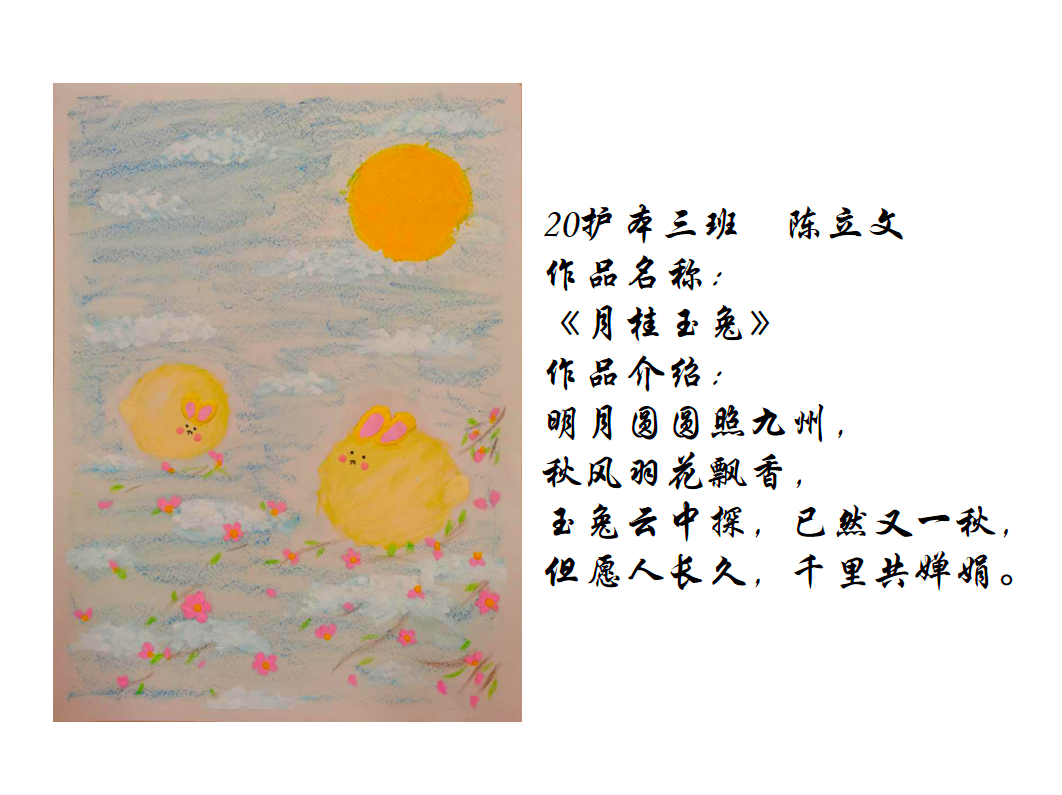 20护本三班 陈立文
作品名称：
《月桂玉兔》
作品介绍：
明月圆圆照九州，
秋风羽花飘香，
玉兔云中探，已然又一秋，
但愿人长久，千里共婵娟。